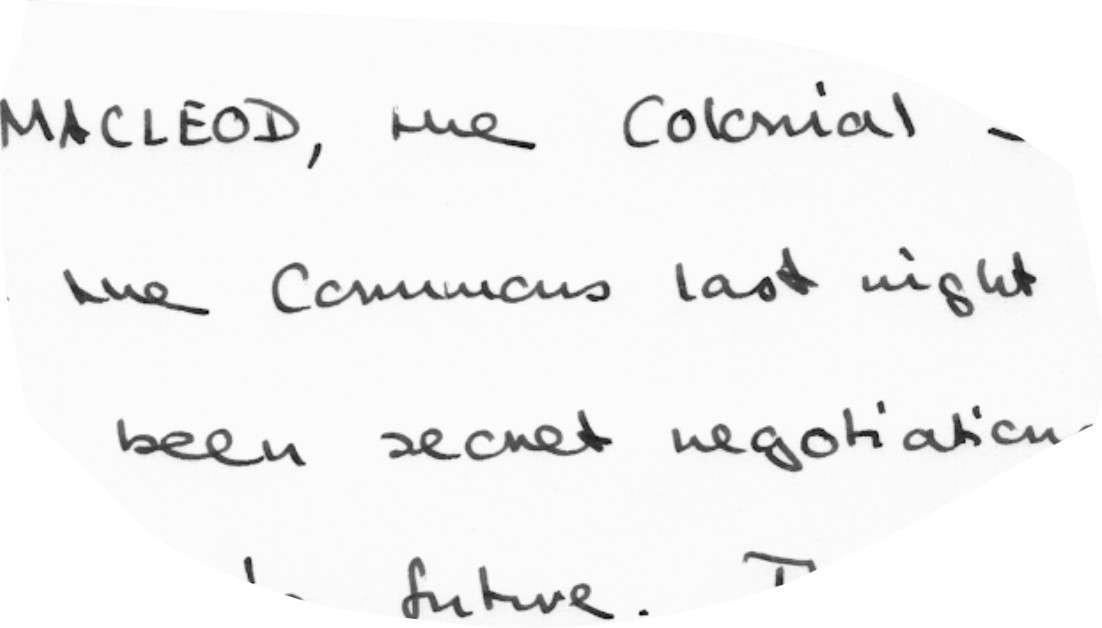 MACLEOD, the Colonial
the Commons last night
been secret negotiation
future.